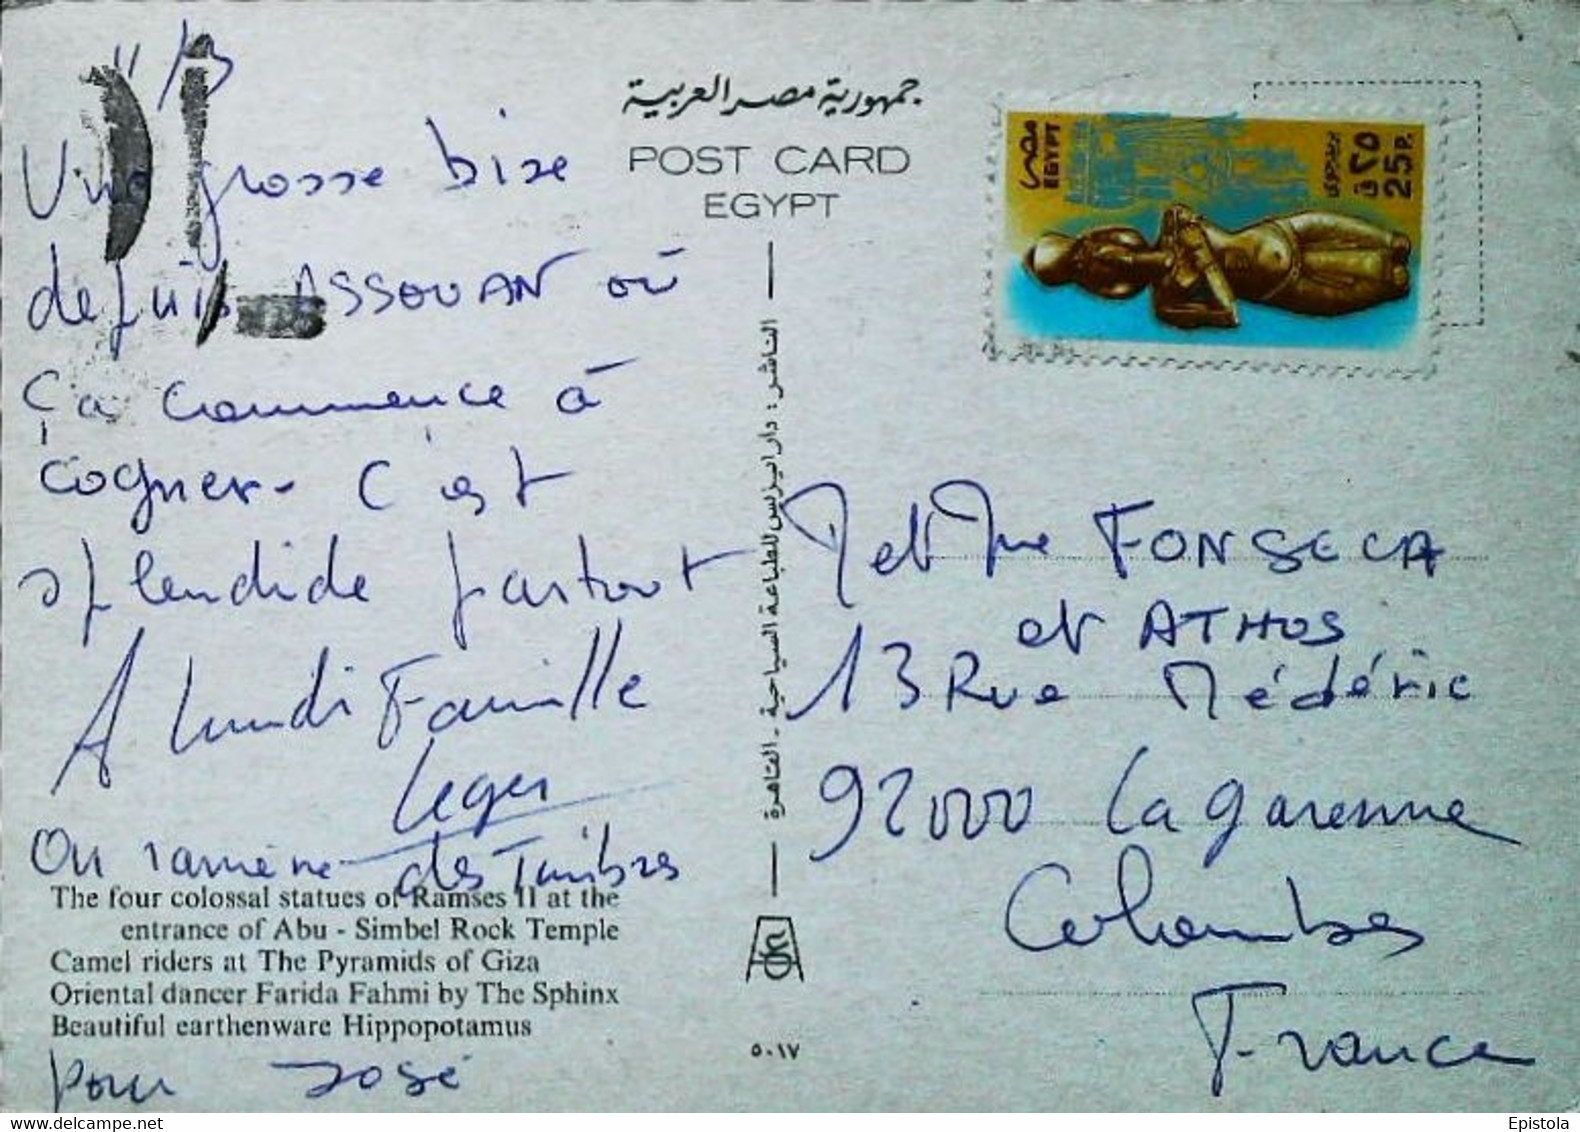 Une grosse bise
depuis ASSOUAN où
ça commence à
cogner. C'est
splendide partout
A lundi Famille
Leger
On ramène des Timbres
pour José
The four colossal statues of Ramses II at the
entrance of Abu - Simbel Rock Temple
Camel riders at The Pyramids of Giza
Oriental dancer Farida Fahmi by The Sphinx
Beautiful earthenware Hippopotamus
جمهورية مصر العربية
POST CARD
EGYPT
الناشر : دار ايزيس للطباعة السياحية - القاهرة
٥٠١٧
مصر
EGYPT
٢٥ ق
25 P.
M et Mme FONSECA
et ATHOS
13 Rue Médéric
92000 La Garenne
Colombes
France
delcampe.net
Epistola